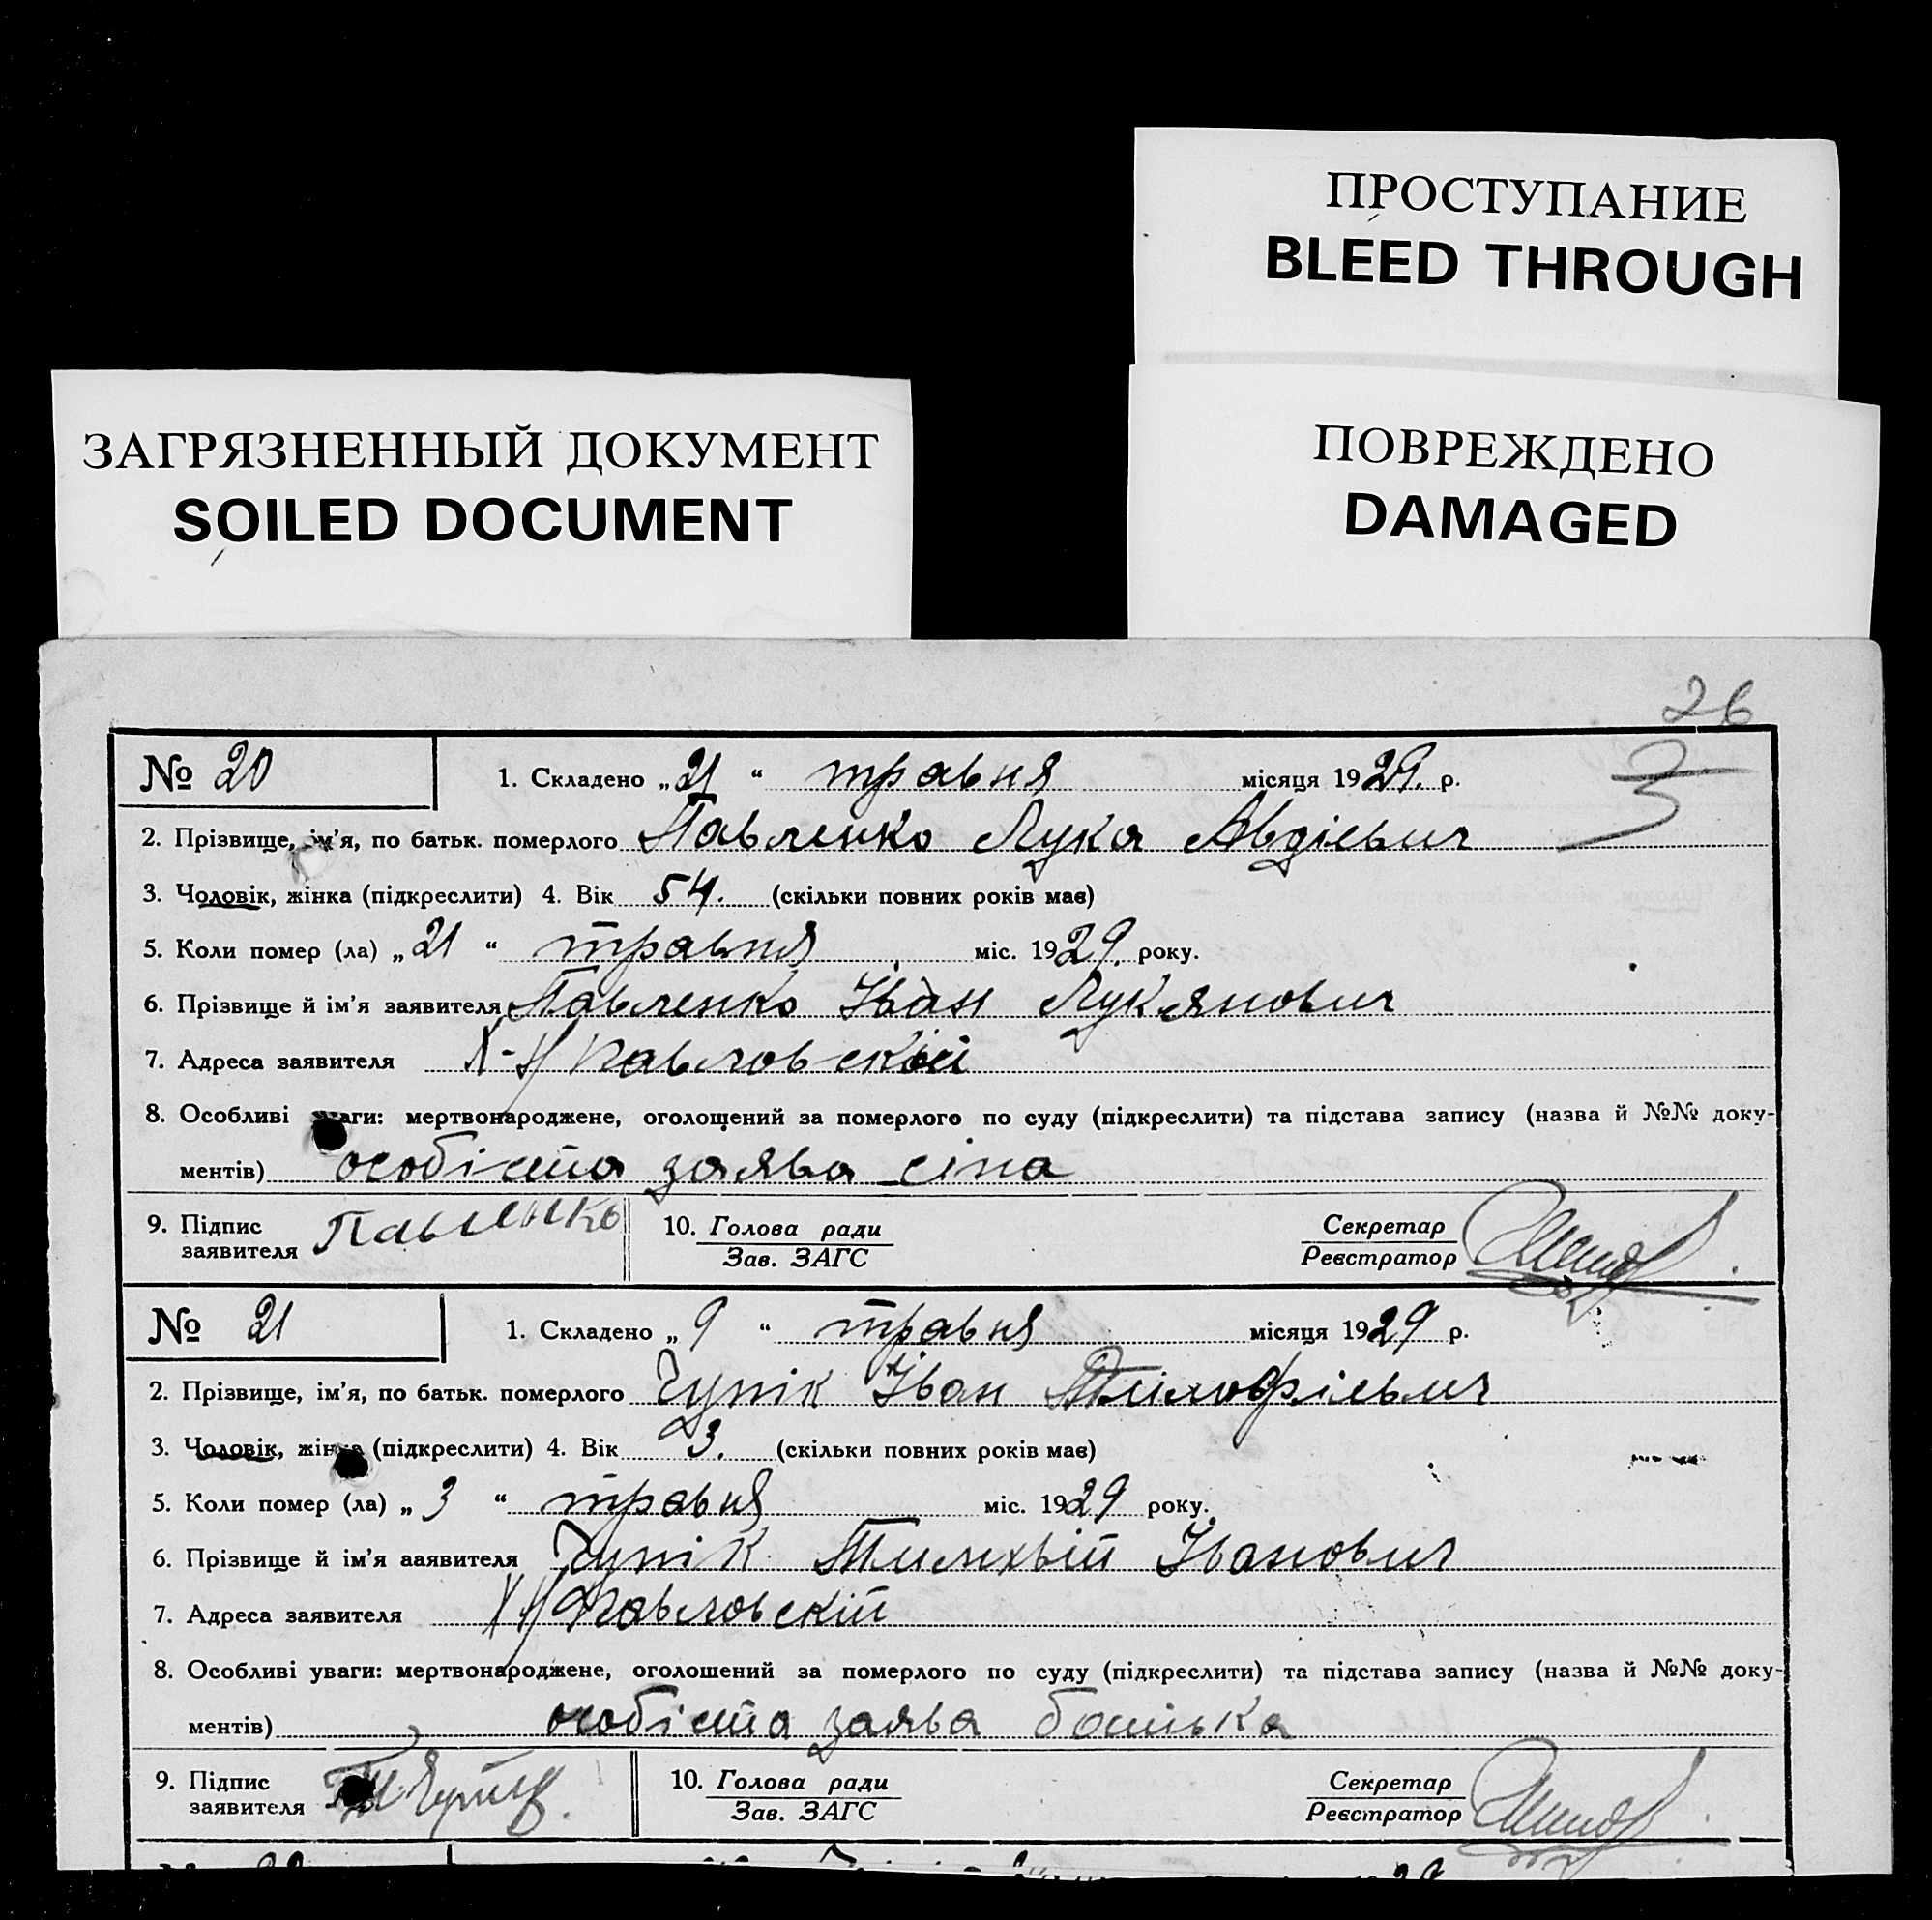 ПРОСТУПАНИЕ
BLEED THROUGH
ЗАГРЯЗНЕННЫЙ ДОКУМЕНТ
SOILED DOCUMENT
ПОВРЕЖДЕНО
DAMAGED
26
№ 20 1. Складено „21 “ травня місяця 1929. р.
2. Прізвище, ім’я, по батьк. померлого Павленко Лука Авдієвич
3. Чоловік, жінка (підкреслити) 4. Вік 54. (скільки повних років має)
5. Коли помер (ла) „21 “ травня міс. 1929. року.
6. Прізвище й ім’я заявителя Павленко Іван Лукянович
7. Адреса заявителя Павловскій
8. Особливі уваги: мертвонароджене, оголощений за померлого по суду (підкреслити) та підстава запису (назва й №№ доку-
ментів) особіста заява сіна
9. Підпис заявителя Павленко 10. Голова ради Зав. ЗАГС Секретар Реєстратор
№ 21 1. Складено „ 9 “ травня місяця 1929 р.
2. Прізвище, ім’я, по батьк. померлого Чупік Іван
3. Чоловік, жінка (підкреслити) 4. Вік 3. (скільки повних років має)
5. Коли помер (ла) „ 3 “ травня міс. 1929 року.
6. Прізвище й ім’я ааявителя Чупік Іванович
7. Адреса заявителя Павловскій
8. Особливі уваги: мертвонароджене, оголошений за померлого по суду (підкреслити) та підстава запису (назва й №№ доку-
ментів) особіста заява батька
9. Підпис заявителя 10. Голова ради Зав. ЗАГС Секретар Реєстратор